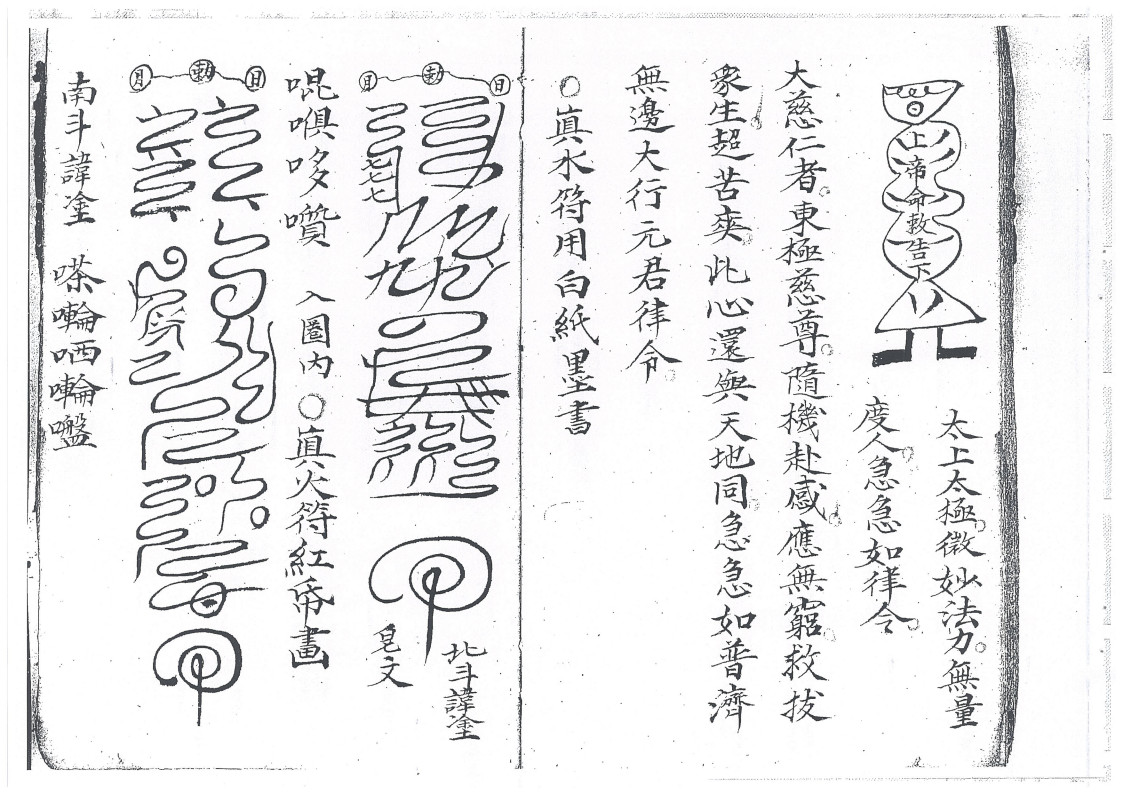 上帝命敕告下
太上太極微妙法力無量
度人急急如律令
大慈仁者東極慈尊隨機赴感應無窮救拔
衆生超苦爽此心還與天地同急急如普濟
無邊大行元君律令
○眞水符用白紙墨書
日 勅 月
七七七
九
北斗諱塗
皂文
哫㖵哆嚽 入圈内 ○眞火符紅帋畫
日 勅 月
南斗諱塗 㗏㖮哂㖮